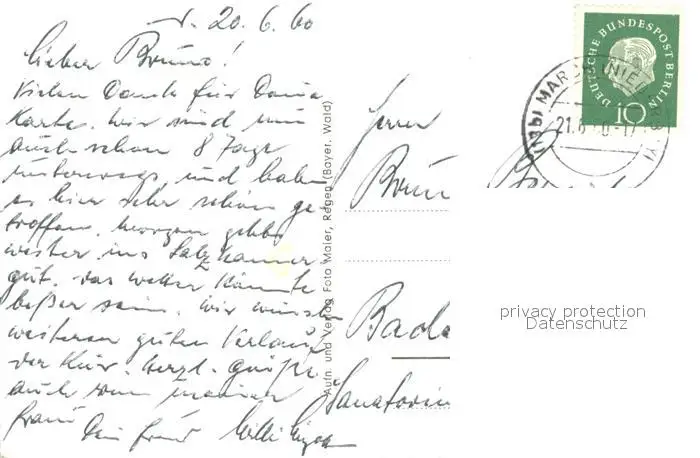 20.6.60
Lieber Bruno!
Vielen Dank für Deine
Karte. Wir sind nun
auch schon 8 Tage
unterwegs und haben
es hier sehr schön ge-
troffen. Morgen gehts
weiter ins Salzkammer-
gut. Das Wetter könnte
beßer sein. Wir wünschen
weiteren guten Verlauf
der Kur. Herzl. Grüße
auch von meiner
Frau
Dein Freund Willi
Aufn. und Verlag Foto Maier, Regen (Bayer. Wald)
Herrn
Brun
Bade
Sanatorium
DEUTSCHE BUNDESPOST BERLIN
10
21.6.60-17
privacy protection
Datenschutz